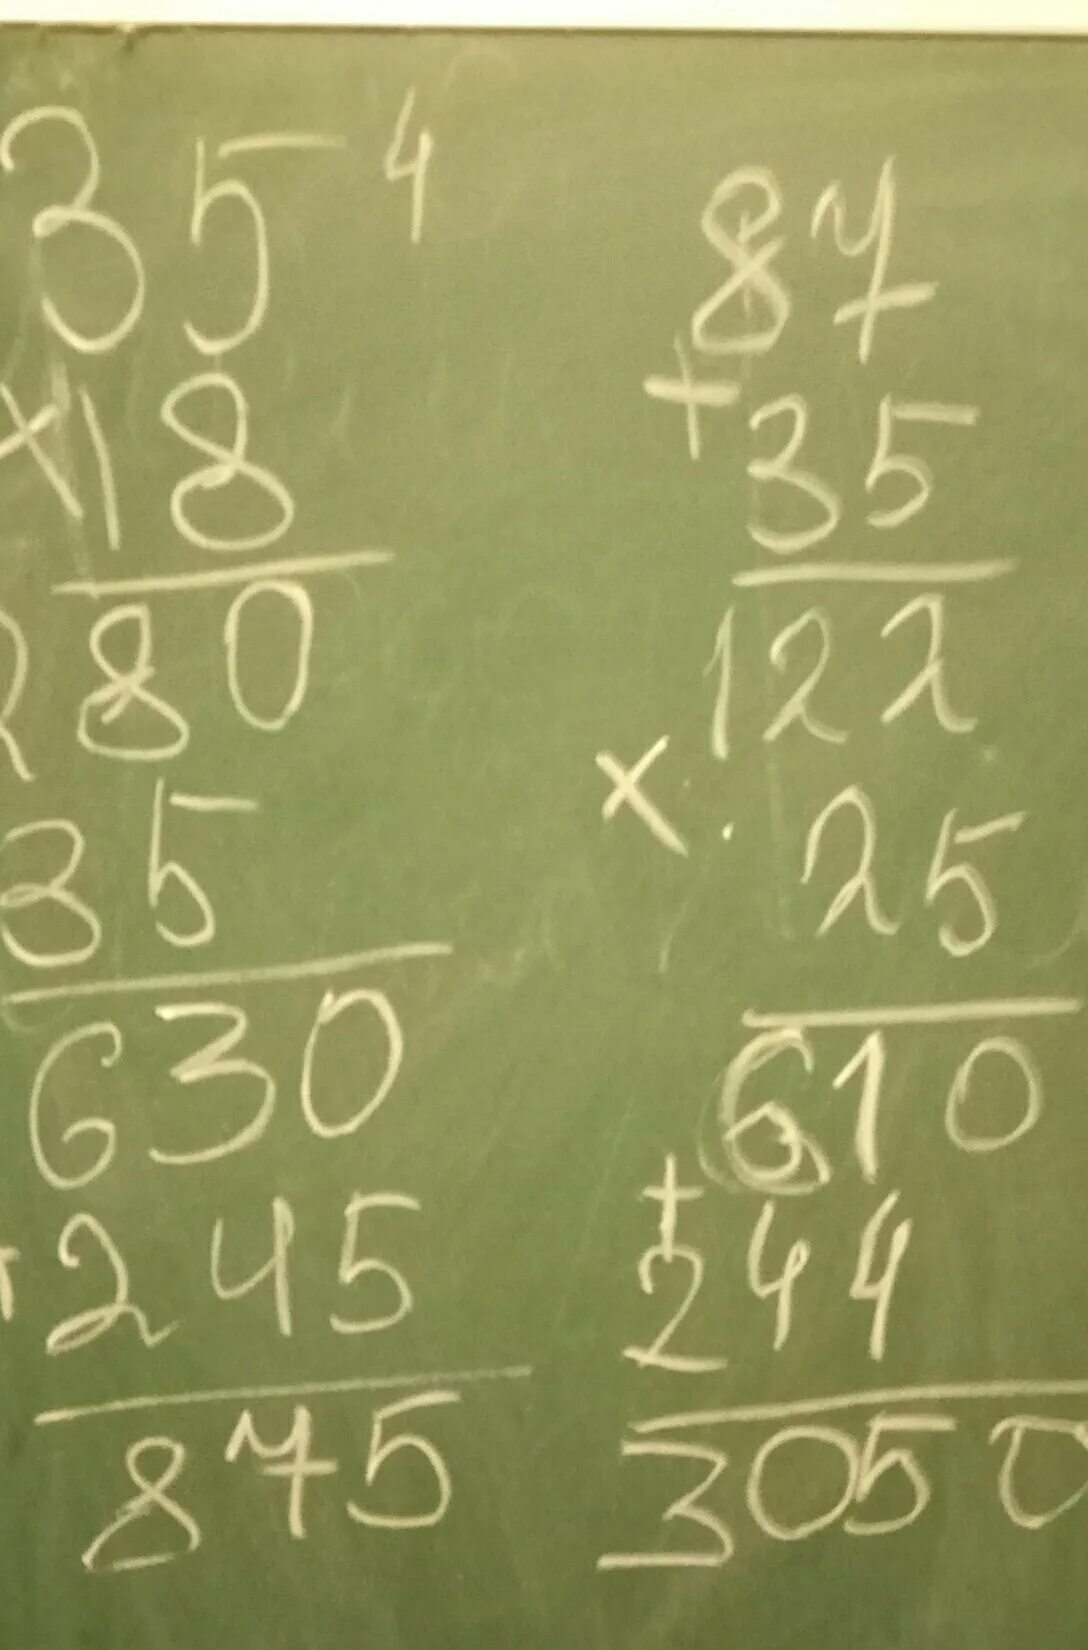 35 4
×18
280
35
630
+245
875
87
+35
122
× 25
610
+244
3050